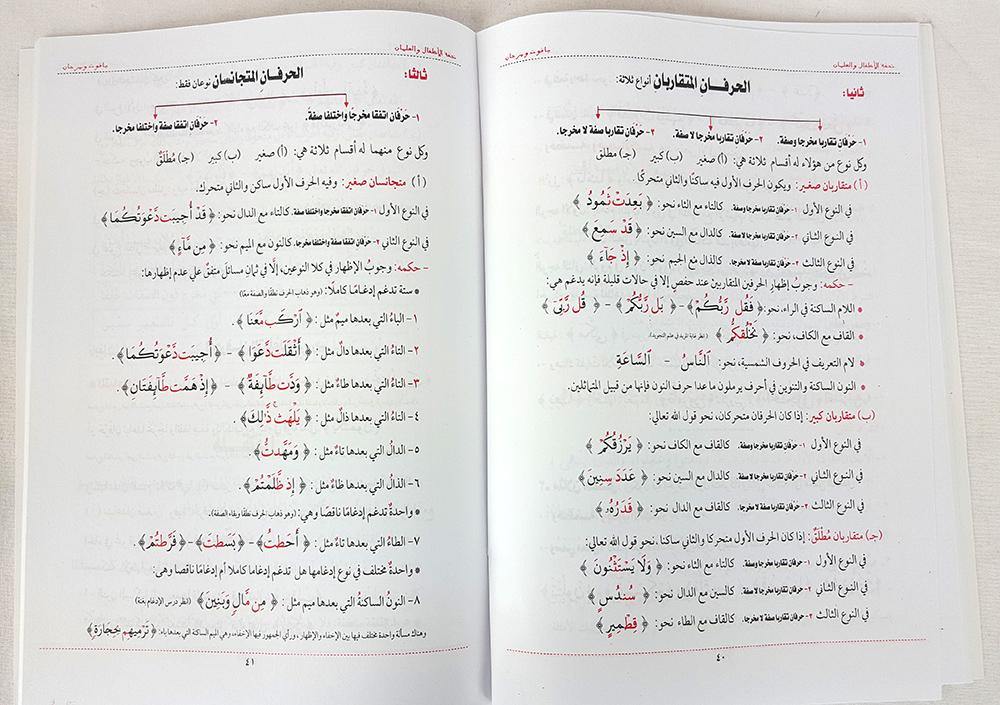 تحفة الأطفال والغلمان
ياقوت ومرجان
ثانيا:
الحرفان المتقاربان أنواع ثلاثة:
١- حَرْفان تقاربا مخرجا وصفة. ٢- حرفان تقاربا مخرجا لا صفة. ٣- حرفان تقاربا صفة لا مخرجا.
وكل نوع من هؤلاء له أقسام ثلاثة هي: (أ) صغير (ب) كبير (جـ) مطلق
(أ) متقاربان صغير: ويكون الحرف الأول فيه ساكنًا والثاني متحركًا.
في النوع الأول ١- حرفان تقاربا مخرجا وصفة. كالتاء مع الثاء نحو: ﴿ بَعِدَتْ ثَمُودُ ﴾
في النوع الثاني ٢- حرفان تقاربا مخرجا لا صفة. كالدال مع السين نحو: ﴿ قَدْ سَمِعَ ﴾
في النوع الثالث ٣- حرفان تقاربا صفة لا مخرجا. كالذال مع الجيم نحو: ﴿ إِذْ جَآءَ ﴾
- حكمه: وجوبُ إظهارِ الحرفين المتقاربين عند حفصٍ إلا في حالات قليلة فإنه يدغم هي:
● اللام الساكنة في الراء، نحو: ﴿فَقُل رَّبُّكُمْ﴾ - ﴿ بَل رَّبُّكُمْ ﴾ - ﴿ قُل رَّبِّىٓ ﴾
● القاف مع الكاف، نحو: ﴿ نَخْلُقكُّم ﴾ (انظر غاية المريد في علم التجويد).
● لام التعريف في الحروف الشمسية، نحو: ٱلنَّاسُ - ٱلسَّاعَةِ
● النون الساكنة والتنوين في أحرف يرملون ما عدا حرف النون فإنها من قبيل المتماثلين.
(ب) متقاربان كبير: إذا كان الحرفان متحركان، نحو قول الله تعالى:
في النوع الأول ١- حرفان تقاربا مخرجا وصفة. كالقاف مع الكاف نحو: ﴿ يَرْزُقُكُمْ ﴾
في النوع الثاني ٢- حرفان تقاربا مخرجا لا صفة. كالدال مع السين نحو: ﴿ عَدَدَ سِنِينَ ﴾
في النوع الثالث ٣- حرفان تقاربا صفة لا مخرجا. كالقاف مع الدال نحو: ﴿ قَدَرُهُۥ ﴾
(جـ) متقاربان مُطْلَقٌ: إذا كان الحرف الأول متحركا والثاني ساكنا، نحو قول الله تعالى:
في النوع الأول ١- حرفان تقاربا مخرجا وصفة. كالتاء مع الثاء نحو: ﴿ وَلَا يَسْتَثْنُونَ ﴾
في النوع الثاني ٢- حرفان تقاربا مخرجا لا صفة. كالسين مع الدال نحو: ﴿ سُندُسٍ ﴾
في النوع الثالث ٣- حرفان تقاربا صفة لا مخرجا. كالقاف مع الطاء نحو: ﴿ قِطْمِيرٍ ﴾
٤٠
تحفة الأطفال والغلمان
ياقوت ومرجان
ثالثا:
الحرفان المتجانسان نوعان فقط:
١- حَرْفان اتفقا مخرجاً واختلفا صفةً. ٢- حَرْفان اتفقا صفة واختلفا مخرجا.
وكل نوع منهما له أقسام ثلاثة هي: (أ) صغير (ب) كبير (جـ) مُطْلَقٌ
(أ) متجانسان صغير: وفيه الحرف الأول ساكن والثاني متحرك.
في النوع الأول ١- حَرْفان اتفقا مخرجا واختلفا صفة. كالتاء مع الدال نحو: ﴿ قَدْ أُجِيبَت دَّعْوَتُكُمَا ﴾
في النوع الثاني ٢- حرفان اتفقا صفة واختلفا مخرجا. كالنون مع الميم نحو: ﴿ مِن مَّآءٍ ﴾
- حكمه: وجوبُ الإظهار في كلا النوعين، إلَّا في ثمانِ مسائلَ متفقٌ على عدم إظهارها:
* ستة تدغم إدغامًا كاملًا: (وهو ذهاب الحرف نطقًا والصفة معًا)
١- الباءُ التي بعدها ميمٌ مثل: ﴿ ٱرْكَب مَّعَنَا ﴾.
٢- التاءُ التي بعدها دالٌ مثل: ﴿ أَثْقَلَت دَّعَوَا ﴾ - ﴿ أُجِيبَت دَّعْوَتُكُمَا ﴾.
٣- التاءُ التي بعدها طاءٌ مثل: ﴿ وَدَّت طَّآئِفَةٌ ﴾ - ﴿ إِذْ هَمَّت طَّآئِفَتَانِ ﴾.
٤- الثاءُ التي بعدها ذالٌ مثل: ﴿ يَلْهَث ذَّٰلِكَ ﴾.
٥- الدالُ التي بعدها تاءٌ مثل: ﴿ وَمَهَّدتُّ ﴾.
٦- الذالُ التي بعدها ظاءٌ مثل: ﴿ إِذ ظَّلَمْتُمْ ﴾.
* واحدةٌ تدغم إدغاما ناقصًا وهي: (وهو ذهاب الحرف نطقًا وبقاء الصفة).
٧- الطاءُ التي بعدها تاءٌ مثل: ﴿ أَحَطتُ ﴾ - ﴿بَسَطتَ﴾ - ﴿ فَرَّطتُمْ ﴾.
* واحدةٌ مختلف في نوع إدغامها هل تدغم إدغاما كاملا أم إدغامًا ناقصا وهى:
٨- النونُ الساكنةُ التي بعدها ميم مثل: ﴿ مِن مَّالٍ وَبَنِينَ ﴾ (انظر درس الإدغام بغنة)
وهناك مسألة واحدة مختلف فيها بين الإخفاء والإظهار، ورأي الجمهور فيها الإخفاء، وهي الميم الساكنة التي بعدها باء: ﴿ تَرْمِيهِم بِحِجَارَةٍ ﴾
٤١